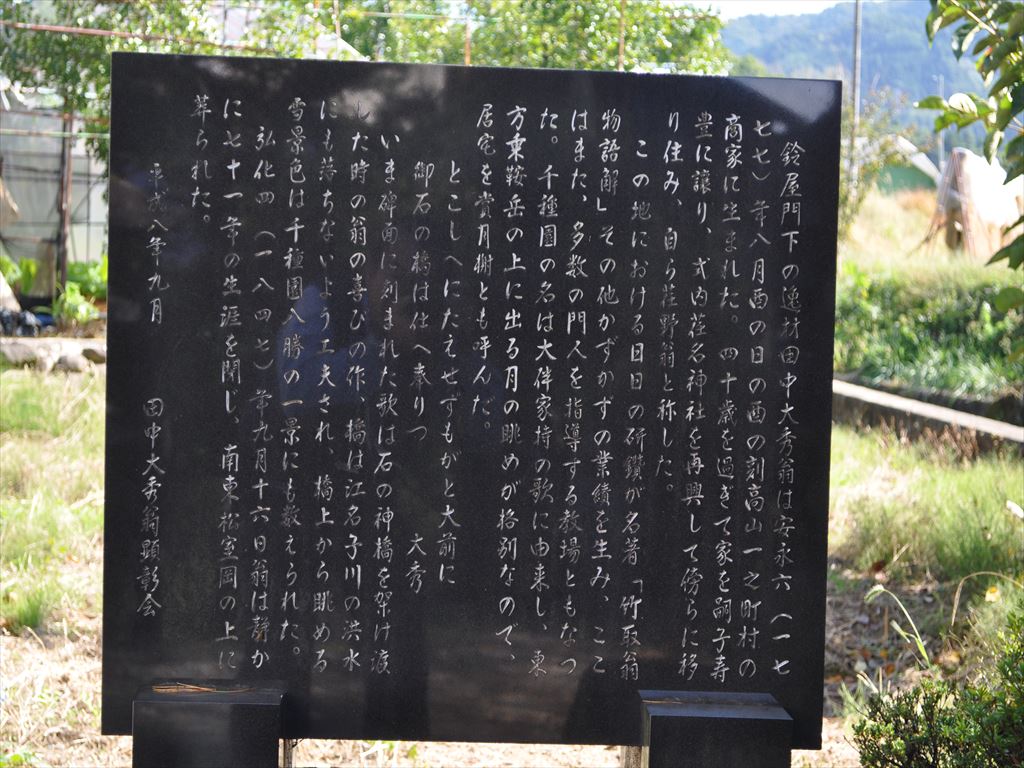 鈴屋門下の逸材田中大秀翁は安永六（一七
七七）年八月酉の日の酉の刻高山一之町村の
商家に生まれた。四十歳を過ぎて家を嗣子寿
豊に譲り、式内荏名神社を再興して傍らに移
り住み、自ら荏野翁と称した。
この地における日日の研鑽が名著「竹取翁
物語解」その他かずかずの業績を生み、ここ
はまた、多数の門人を指導する教場ともなつ
た。千種園の名は大伴家持の歌に由来し、東
方乗鞍岳の上に出る月の眺めが格別なので、
居宅を賞月榭とも呼んだ。
とこしへにたえせずもがと大前に
御石の橋は仕へ奉りつ　大秀
いま碑面に刻まれた歌は石の神橋を架け渡
した時の翁の喜びの作、橋は江名子川の洪水
にも落ちないよう工夫され、橋上から眺める
雪景色は千種園八勝の一景にも数えられた。
弘化四（一八四七）年九月十六日翁は静か
に七十一年の生涯を閉じ、南東松室岡の上に
葬られた。
平成八年九月　田中大秀翁顕彰会